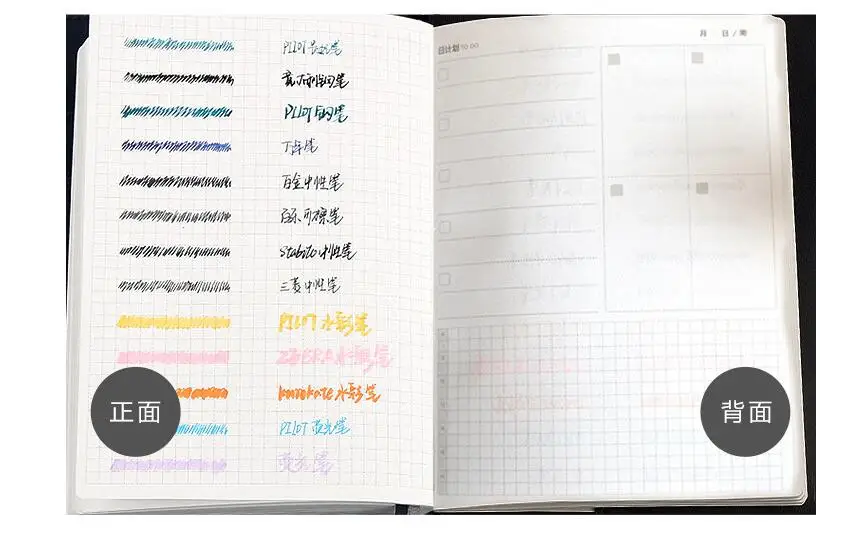 PILOT 钢笔
PILOT 钢笔
百金中性笔
百乐可擦笔
Stabilo 中性笔
三菱中性笔
PILOT 水彩笔
ZEBRA 水彩笔
Kuretake 水彩笔
PILOT 荧光笔
荧光笔
正面
日计划 TO DO
月 日 / 周
背面